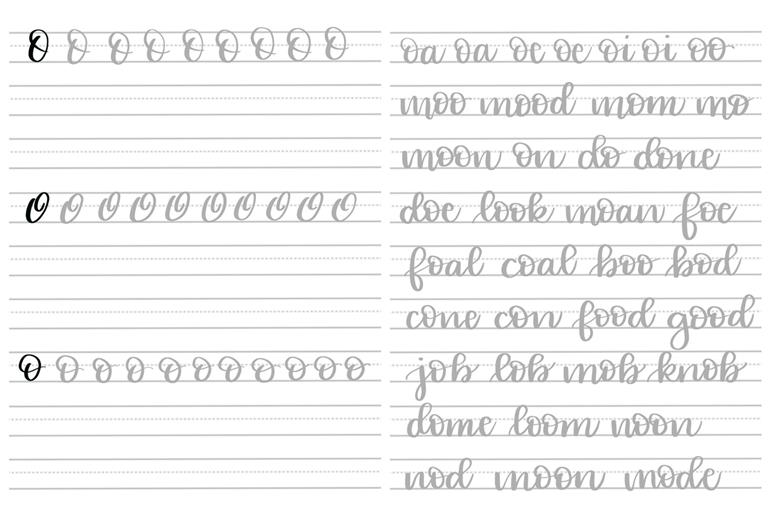 O O O O O O O O O
O O O O O O O O O O
o o o o o o o o o o o
oa oa oe oe oi oi oo
moo mood mom mo
moon on do done
doe look moan foe
foal coal boo bod
cone con food good
job lob mob knob
dome loom noon
nod moon mode